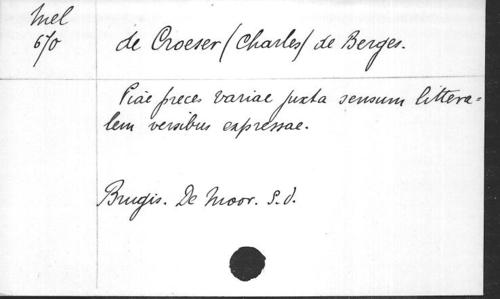 Mel
670
de Croeser (Charles) de Berges.
Piae preces variae juxta sensum littera=
lem versibus expressae.
Brugis. De Moor. S.d.